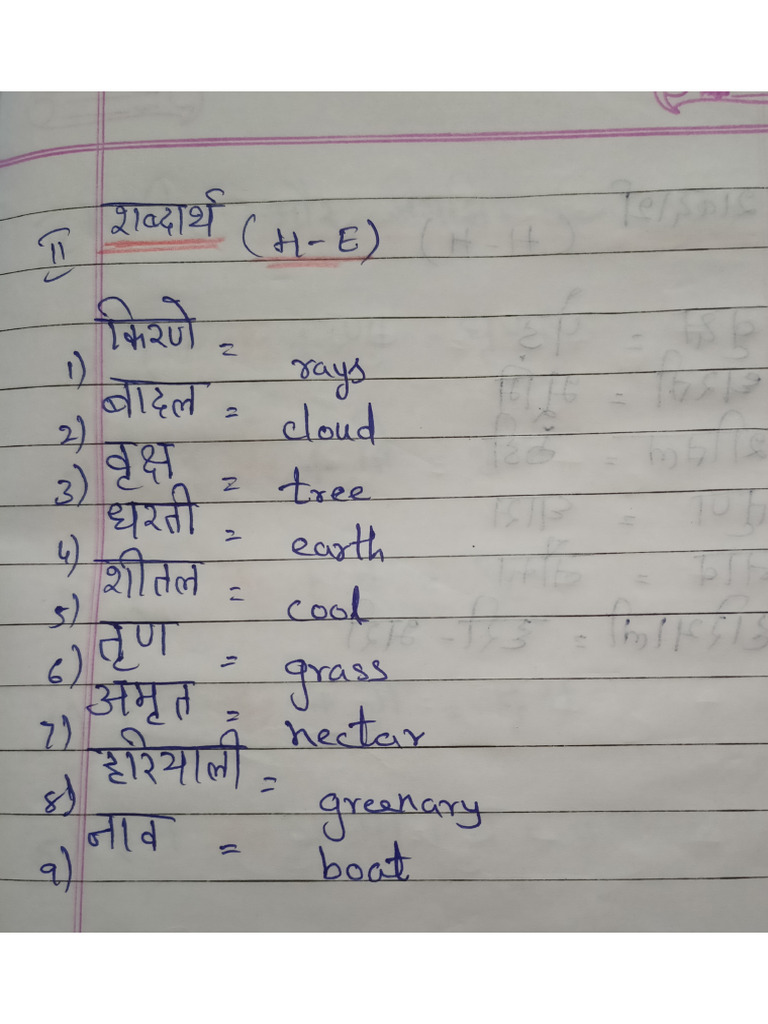 II शब्दार्थ (H-E)
1) किरणे = rays
2) बादल = cloud
3) वृक्ष = tree
4) धरती = earth
5) शीतल = cool
6) तृण = grass
7) अमृत = nectar
8) हरियाली = greenary
9) नाव = boat